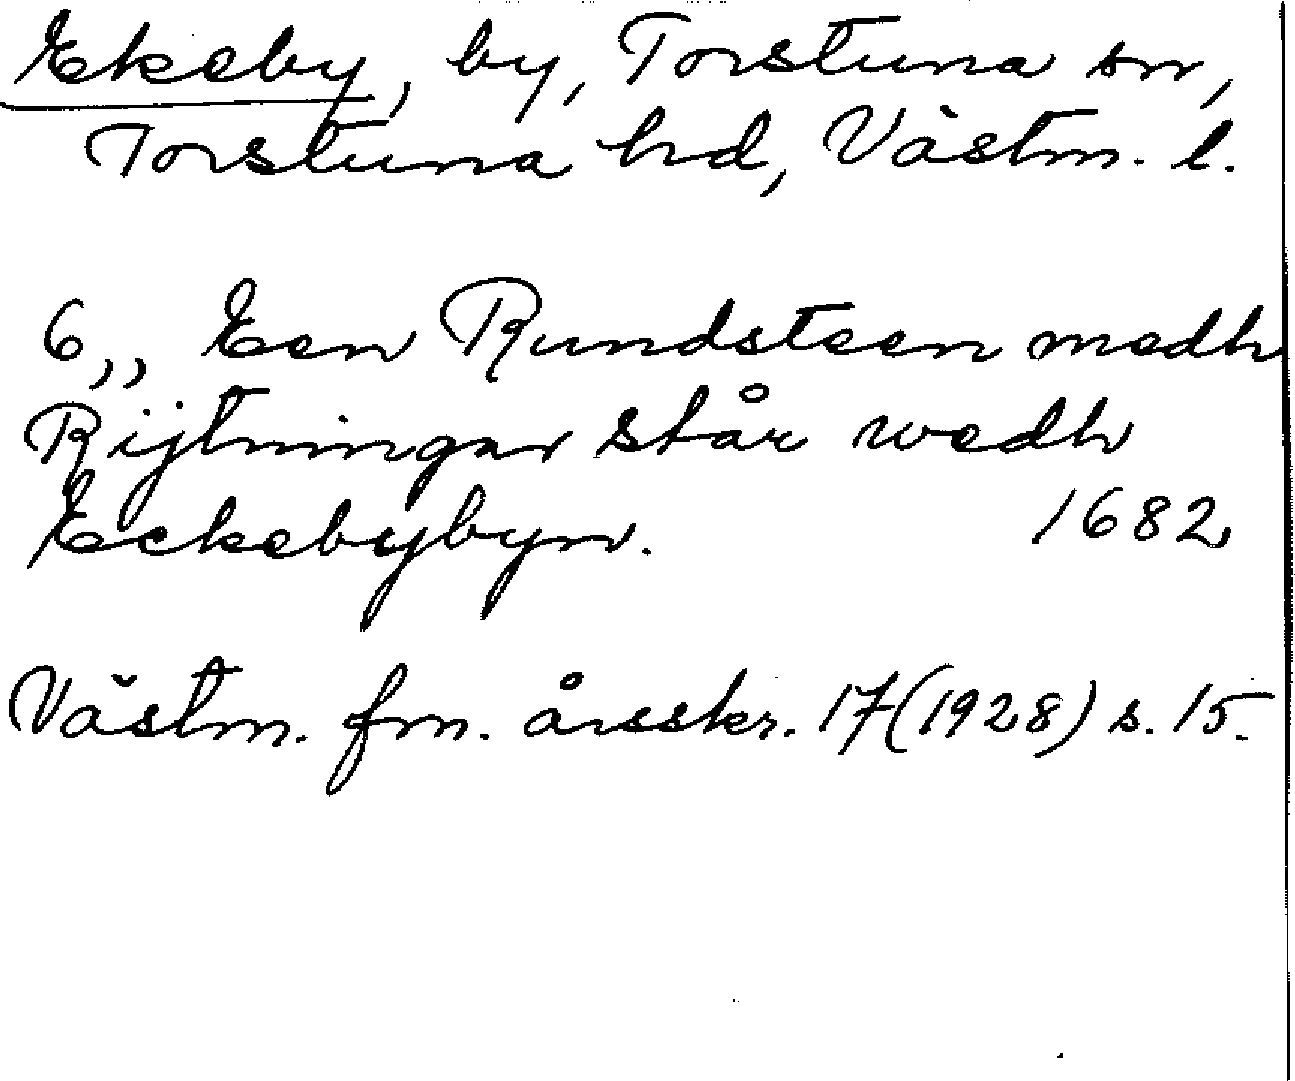 Ekeby, by, Torstuna sn,
Torstuna hd, Västm. l.
6,, Een Rundsteen medh
Rijtningar står wedh
Eckebybyn. 1682
Västm. fm. årsskr. 17(1928) s. 15.